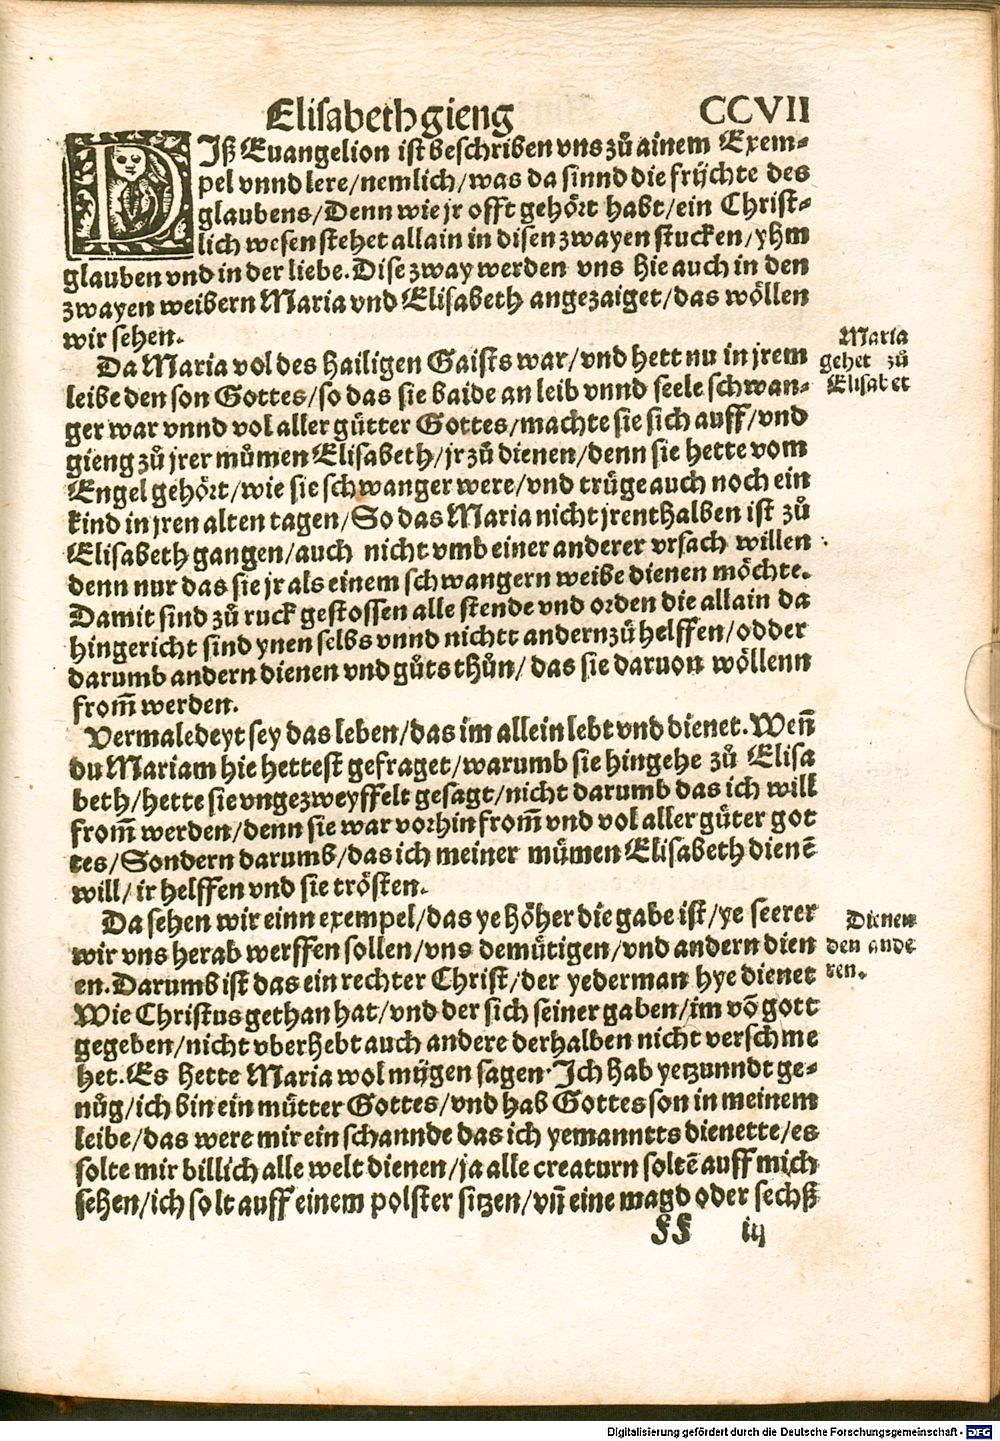 Elisabeth gieng CCVII
DIß Euangelion ist beschriben vns zů ainem Exem-
pel vnnd lere/nemlich/was da sinnd die frijchte des
glaubens/Denn wie jr offt gehört habt/ein Christ-
lich wesen stehet allain in disen zwayen stucken/yhm
glauben vnd in der liebe. Dise zway werden vns hie auch in den
zwayen weibern Maria vnd Elisabeth angezaiget/das wöllen
wir sehen.
Da Maria vol des hailigen Gaists war/vnd hett nu in jrem
leibe den son Gottes/so das sie baide an leib vnnd seele schwan-
ger war vnnd vol aller gütter Gottes/machte sie sich auff/vnd
gieng zů jrer můmen Elisabeth/jr zů dienen/denn sie hette vom
Engel gehört/wie sie schwanger were/vnd trüge auch noch ein
kind in jren alten tagen/So das Maria nicht jrenthalben ist zů
Elisabeth gangen/auch nicht vmb einer anderer vrsach willen
denn nur das sie jr als einem schwangern weibe dienen möchte.
Damit sind zů ruck gestossen alle stende vnd orden die allain da
hingericht sind ynen selbs vnnd nichtt andern zů helffen/odder
darumb andern dienen vnd gůts thůn/das sie daruon wöllenn
from̃ werden.
Vermaledeyt sey das leben/das im allein lebt vnd dienet. Weñ
du Mariam hie hettest gefraget/warumb sie hingehe zů Elisa
beth/hette sie vngezweyffelt gesagt/nicht darumb das ich will
from̃ werden/denn sie war vorhin from̃ vnd vol aller güter got
tes/Sondern darumb/das ich meiner můmen Elisabeth dienē
will/ir helffen vnd sie trösten.
Da sehen wir einn exempel/das ye höher die gabe ist/ye seerer
wir vns herab werffen sollen/vns demütigen/vnd andern dien
en. Darumb ist das ein rechter Christ/der yederman hye dienet
Wie Christus gethan hat/vnd der sich seiner gaben/im võ gott
gegeben/nicht vberhebt auch andere derhalben nicht verschme
het. Es hette Maria wol mijgen sagen. Ich hab yetzunndt ge-
nůg/ich bin ein můtter Gottes/vnd hab Gottes son in meinem
leibe/das were mir ein schannde das ich yemanntts dienette/es
solte mir billich alle welt dienen/ja alle creaturn soltē auff mich
sehen/ich solt auff einem polster sitzen/vñ eine magd oder sechß
SS iij
Maria
gehet zů
Elisabet
Dienen
den ande
ren.
Digitalisierung gefördert durch die Deutsche Forschungsgemeinschaft - DFG